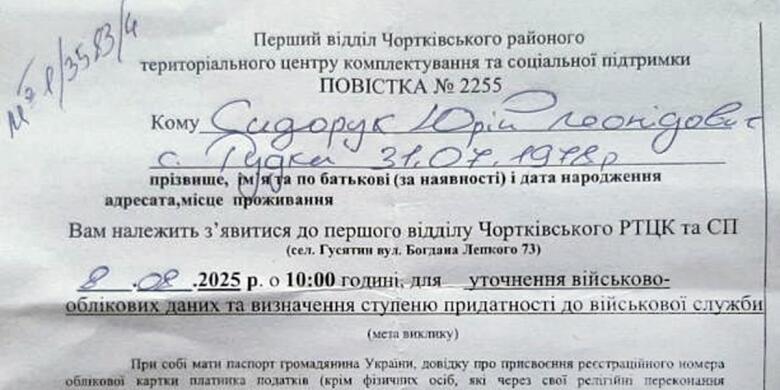 М№1/3583/4
Перший відділ Чортківського районого
територіального центру комплектування та соціальної підтримки
ПОВІСТКА № 2255
Кому Сидорук Юрій Леонідович
с. Гудки 31.07.1978р
прізвище, ім'я та по батькові (за наявності) і дата народження
адресата,місце проживання
Вам належить з’явитися до першого відділу Чортківського РТЦК та СП
(сел. Гусятин вул. Богдана Лепкого 73)
8 .08 .2025 р. о 10:00 годині, для уточнення військово-
облікових даних та визначення ступеню придатності до військової служби
(мета виклику)
При собі мати паспорт громадянина України, довідку про присвоєння реєстраційного номера
облікової картки платника податків (крім фізичних осіб, які через свої релігійні переконання